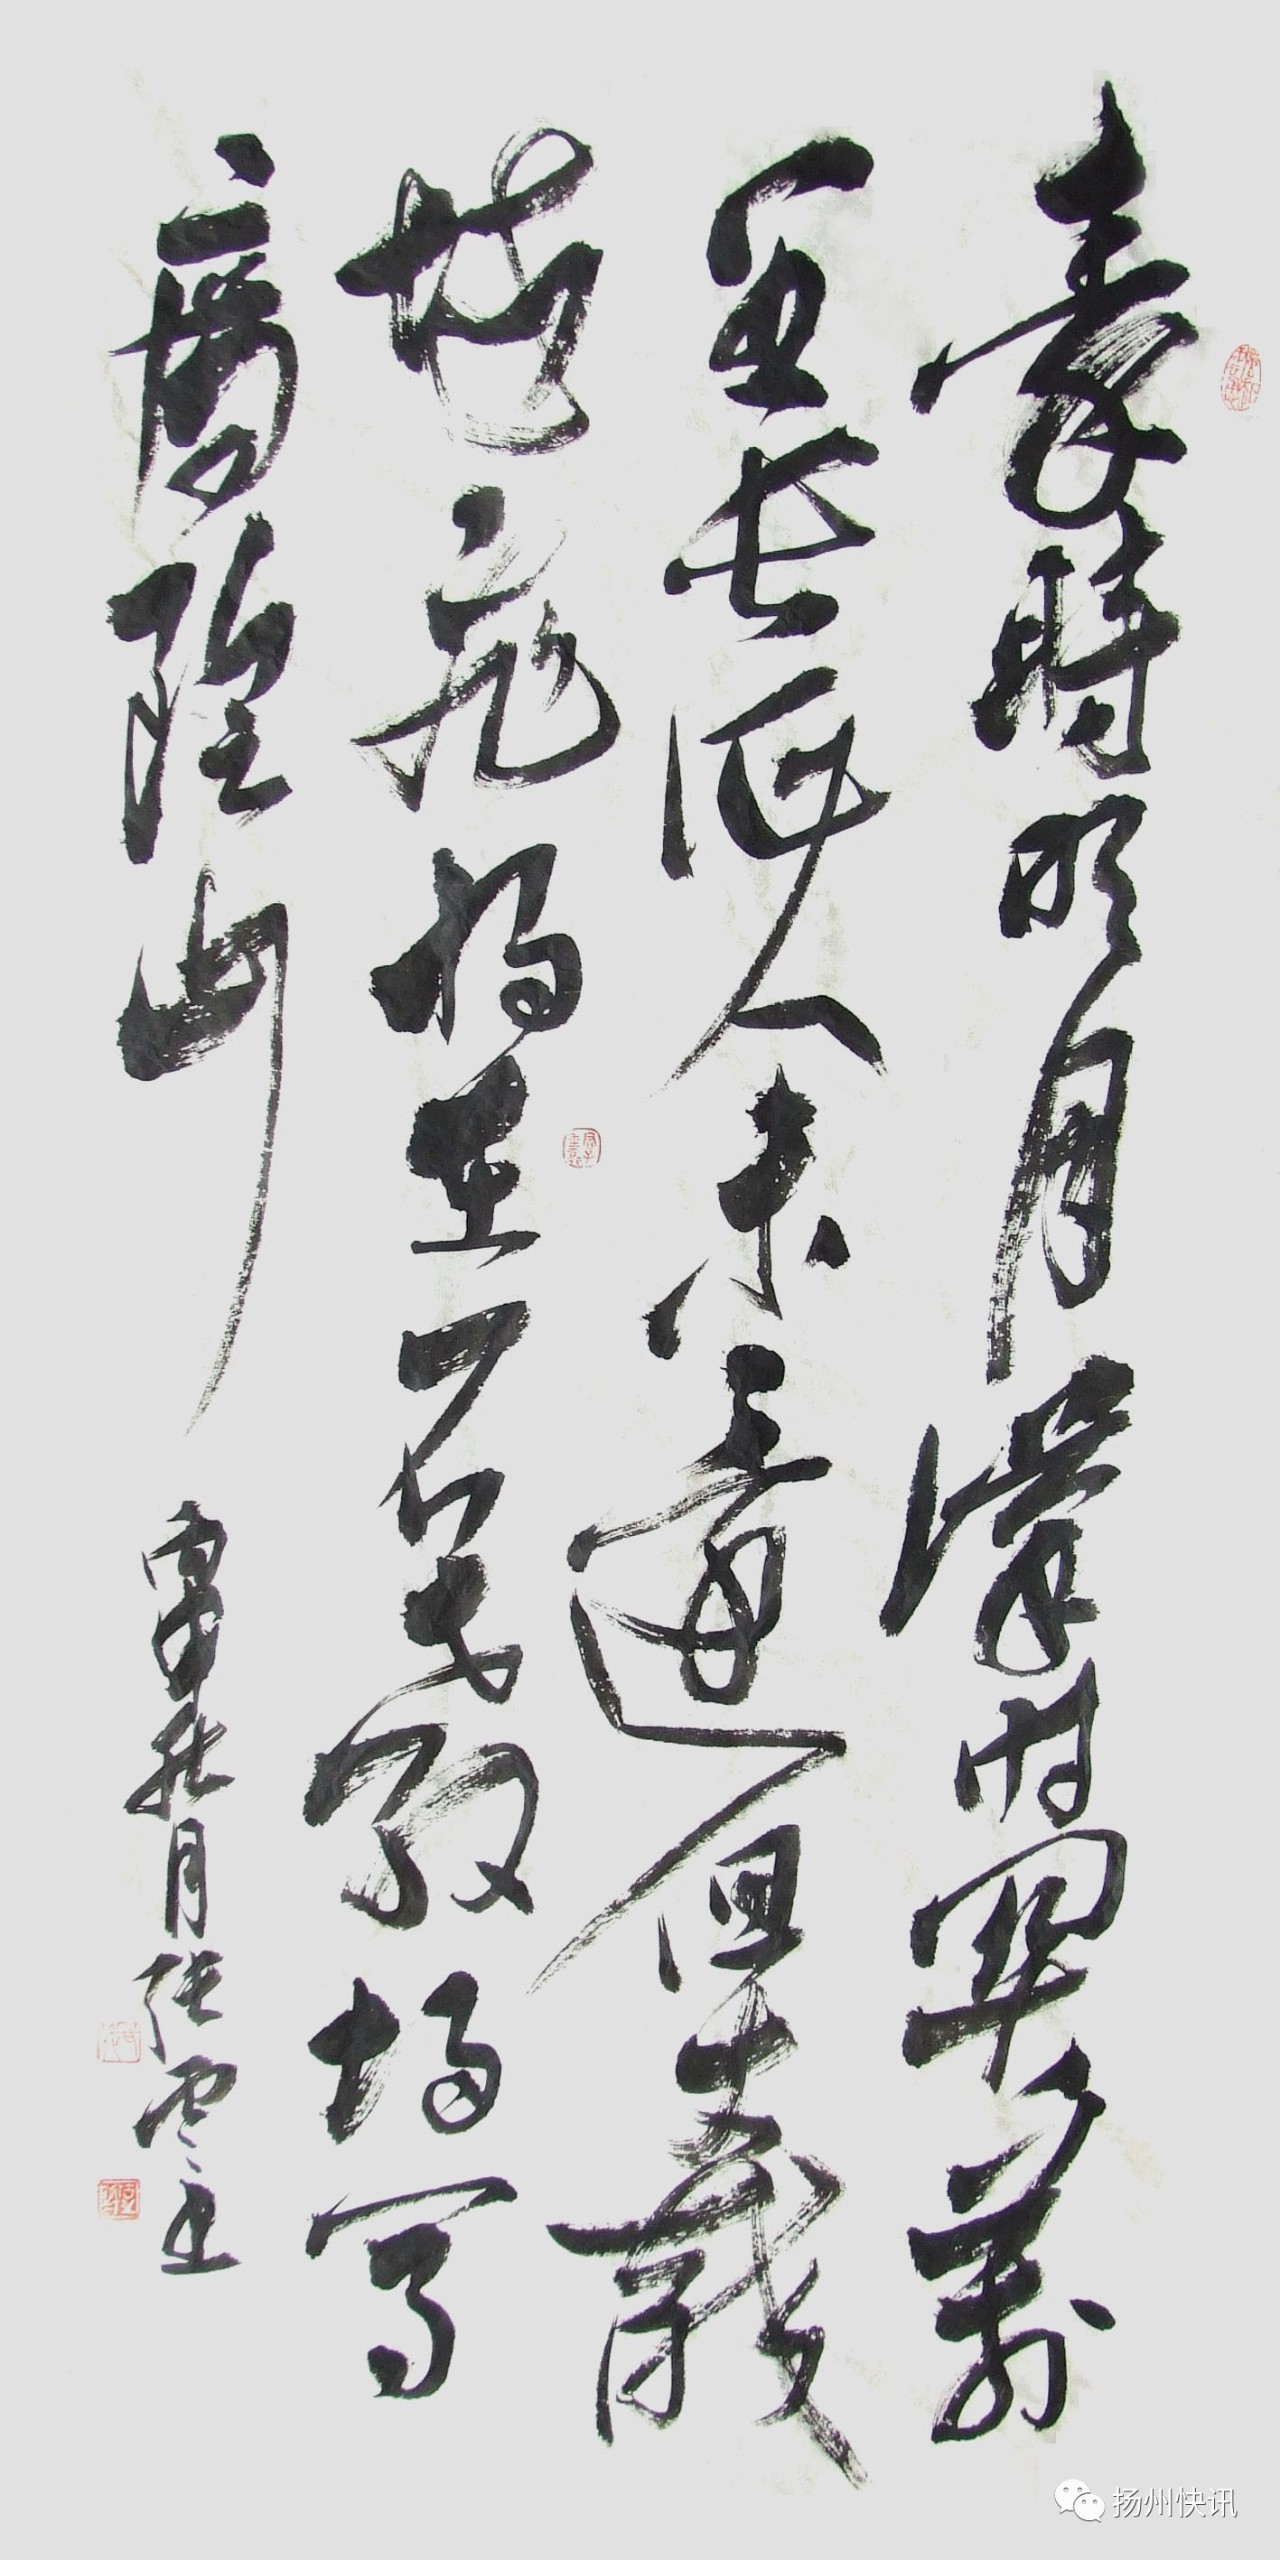 秦時明月漢時關萬
里長征人未還但使龍
城飛將在不教胡馬
度陰山
秋月張
扬州快讯